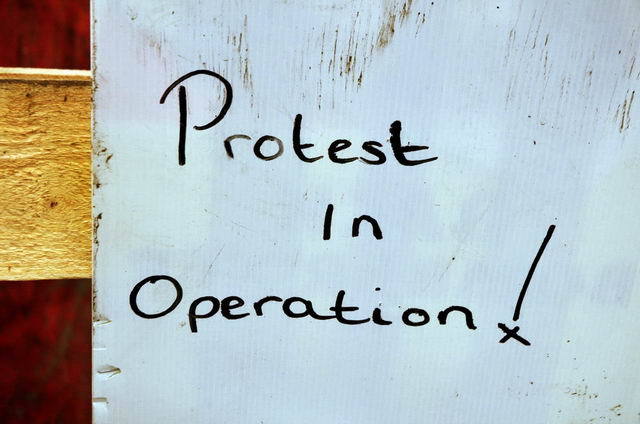 Protest
In
Operation!